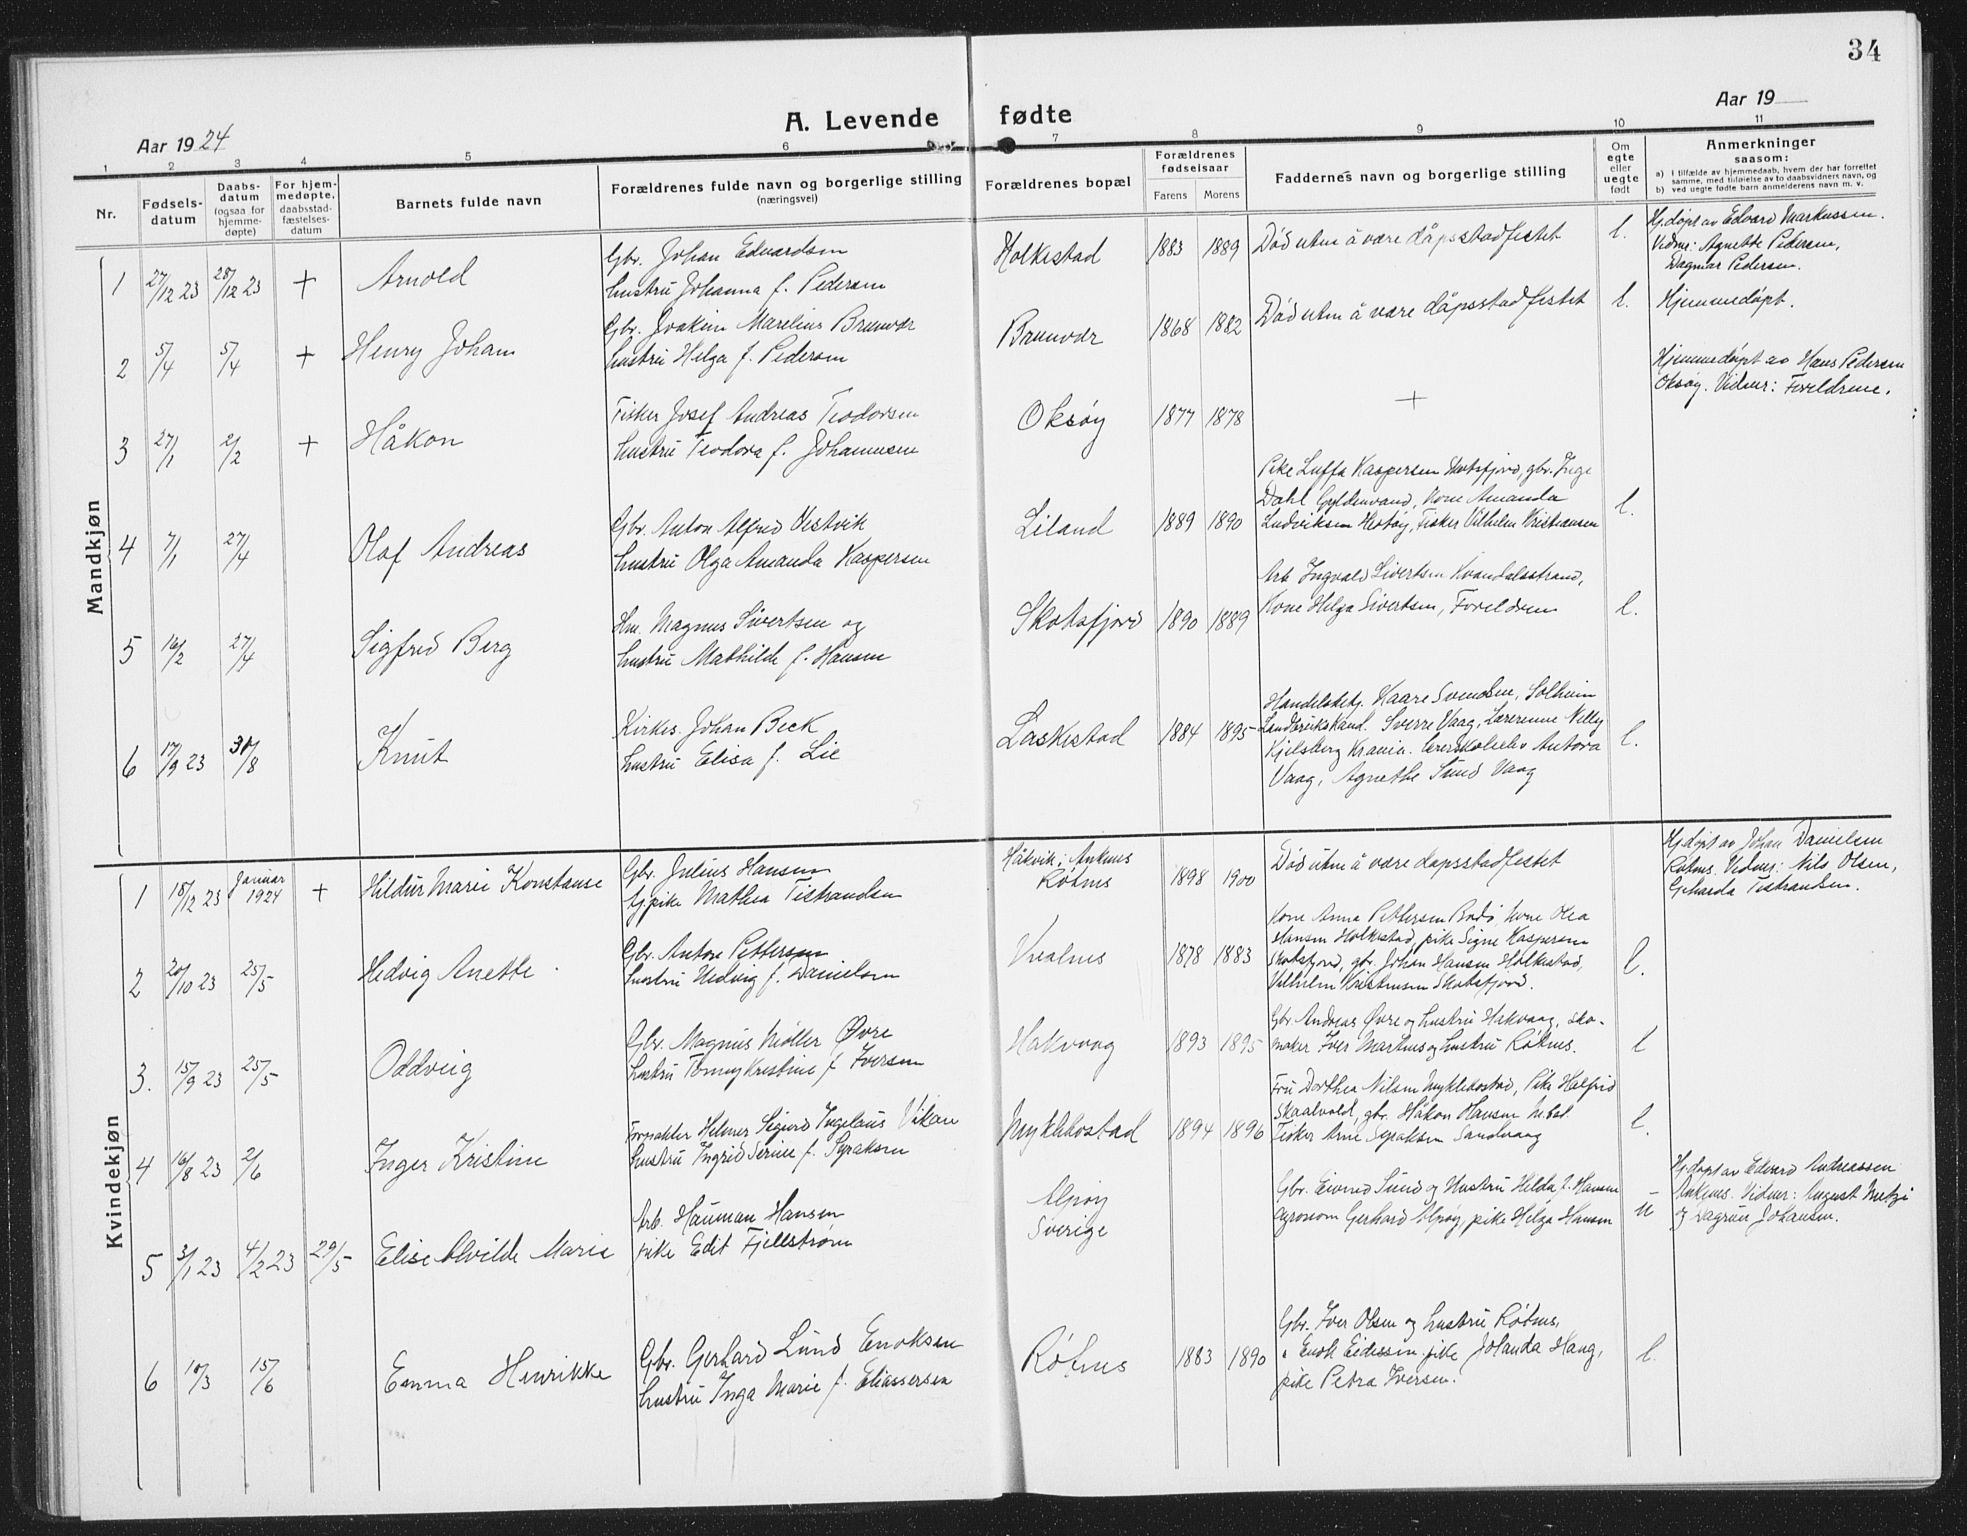 34
A. Levende fødte
Aar 1924
Aar 19
1 2 3 4 5 6 7 8 9 10 11
Nr.
Fødsels-
datum
Daabs-
datum
(ogsaa for
hjemme-
døpte)
For hjem-
medøpte,
daabsstad-
fæstelses-
datum
Barnets fulde navn
Forældrenes fulde navn og borgerlige stilling
(næringsvei)
Forældrenes bopæl
Forældrenes
fødselsaar
Farens Morens
Faddernes navn og borgerlige stilling
Om
egte
eller
uegte
født
Anmerkninger
saasom:
a) i tilfælde av hjemmedaab, hvem der har forrettet
samme, med tilføielse av to daabsvidners navn, og
b) ved uegte fødte barn anmelderens navn m. v.
Mandkjøn
1 27/12 23 28/12 23 + Arnold
Gbr. Johan Edvardsen
hustru Johanna f. Pedersen
Holkestad 1883 1889
Død uten å være dåpsstadfestet
l.
Hj.døpt av Edvard Markussen.
Vidne: Agnethe Pedersen,
Dagmar Pedersen.
2 5/4 5/4 + Henry Johan
Gbr. Joakim Marelius Brunvær
hustru Helga f. Pedersen
Brunvær 1868 1882
Død uten å være dåpsstadfestet
l.
Hjemmedøpt.
3 27/1 2/2 + Håkon
Fisker Josef Andreas Teodorsen
hustru Teodora f. Johannesen
Oksøy 1877 1878
+
Hjemmedøpt av Hans Pedersen
Oksøy. Vidner: Foreldrene.
4 7/1 27/4 Olaf Andreas
Gbr. Anton Alfred Vestvik
hustru Olga Amanda Kaspersen
Liland 1889 1890
Pike Luffa Kaspersen Skotsfjord, gbr. Inge
Dahl Gyldenvand, Kone Amanda
Ludviksen Hestøy, Fisker Vilhelm Kristiansen
l.
5 16/2 27/4 Sigfred Berg
Hm. Magnus Sivertsen og
hustru Mathilde f. Hansen
Skotsfjord 1890 1889
Arb. Ingvald Sivertsen Kvandalsstrand,
Kone Helga Sivertsen, Foreldren
l.
6 17/9 23 31/8 Knut
Kirkes. Johan Beck
hustru Elisa f. Lie
Laskestad 1884 1895
Handelsbetj. Kaare Svendsen, Solheim
Landbrukskand. Sverre Vaag, Lærerinne Nelly
Kjelsberg Krania. lærerskoleelev Antora
Vaag, Agnethe Sund Vaag
l.
Kvindekjøn
1 15/12 23 Januar
1924 + Hildur Marie Konstanse
Gbr. Julius Hansen
hj pike Mathea Tistrandsen
Håkvik, Ankenes
Røtnes 1898 1900
Død uten å være dåpsstadfestet
Hj.døpt av Johan Danielsen
Røtnes. Vidner: Nils Olsen,
Gerharda Tistrandsen.
2 20/10 23 25/5 Hedvig Anette
Gbr. Anton Pettersen
hustru Hedvig f. Danielsen
1878 1883
Kone Anna Pettersen Bodø, Kone Olea
Hansen Holkestad, pike Signe Kaspersen
Skotsfjord, gbr. Johan Hansen Holkestad,
Vilhelm Kristensen Skotsfjord.
l.
3. 15/9 23 25/5 Oddveig
Gbr. Magnus Møller Øvre
hustru Tomny Kristine f. Iversen
Hakvaag 1893 1895
Gbr Andreas Øvre og hustru Hakvaag, sko-
maker Iver Martinus og hustru Røtnes.
l
4 16/8 23 2/6 Inger Kristine
Forpakter Helmer Sigurd Ingelaus Vikan
hustru Ingrid Serine f. Syraksen
Myklebostad 1894 1896
Fru Dorthea Nilsen Myklebostad, Pike Halfrid
Skaalvold, gbr. Håkon Hansen M.bst
Fisker Arne Syraksen Sandvaag
l.
5 3/1 23 4/2 23 29/5 Elise Alvilde Marie
Arb. Hauman Hansen
pike Edit Fjellstrøm
Alpøy
Sverige
Gbr. Eivind Sund og hustru Hilda f. Hansen
Agronom Gerhard Alpøy, pike Helga Hansen
u
Hj.døpt av Edvard Andreassen
Ankenes. Vidner: August Metzi
og Dagrun Johansen.
6 10/3 15/6 Emma Henrikke
Gbr. Gerhard Lund Enoksen
hustru Inga Marie f. Eliassersen
Røtnes 1883 1890
Gbr. Iver Olsen og hustru Røtnes,
" Enok Eidessen pike Jolanda Haag,
pike Petra Iversen.
l.